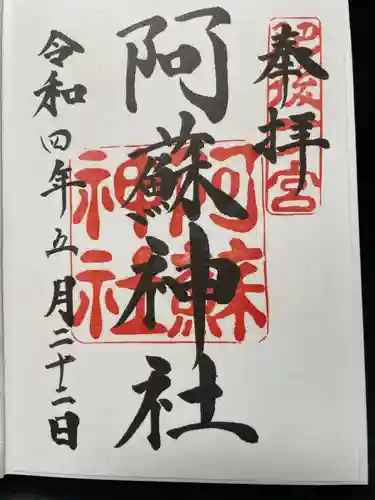 奉拝
肥後一宮
阿蘇神社
阿蘇神社
令和四年五月二十二日